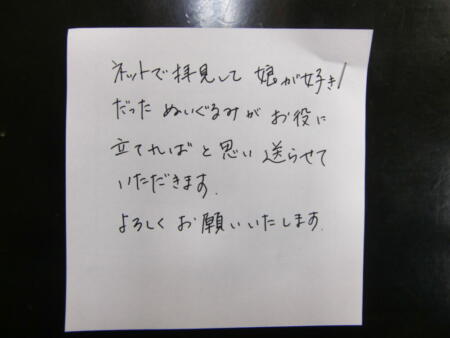 ネットで拝見して 娘が好き
だった ぬいぐるみが お役に
立てればと思い 送らせて
いただきます.
よろしく お願いいたします.